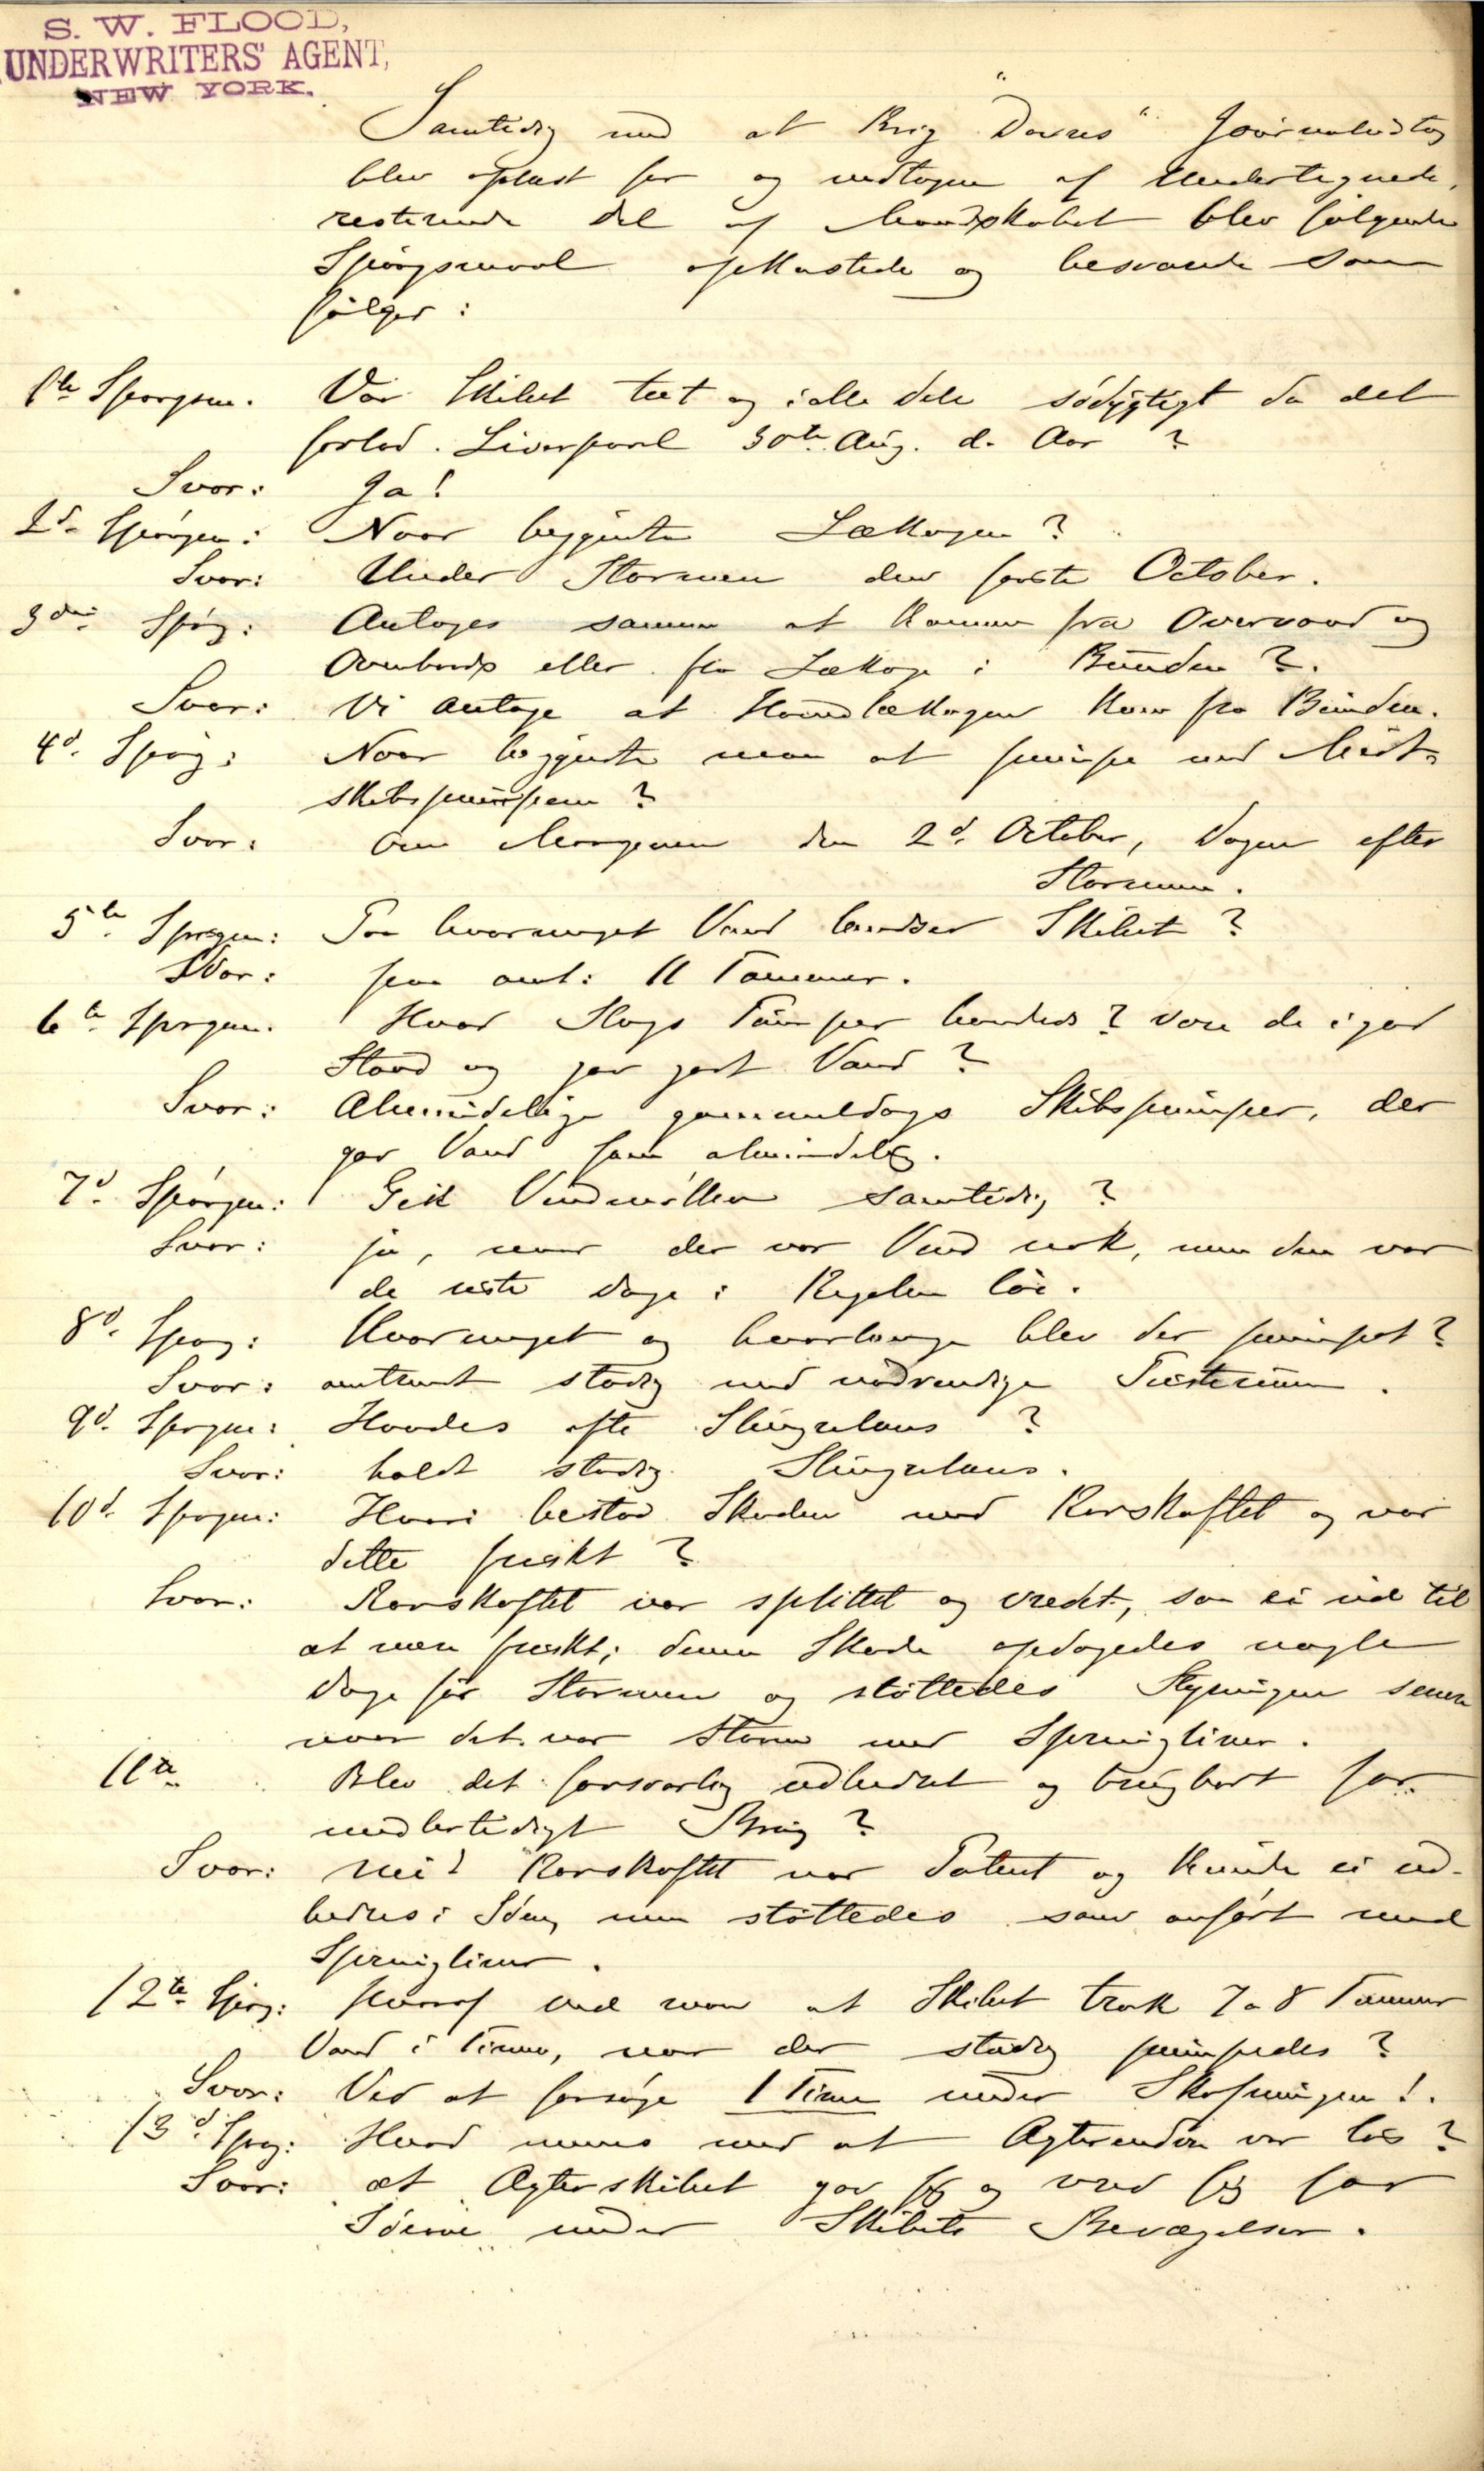 S. W. FLOOD,
UNDERWRITERS' AGENT,
NEW YORK.
Samtidig med at Brig "Dovres" Journaludtog
blev oplæst for og vedtagen af Undertegnede,
resterende Del af Mandskabet blev følgende
Spörgsmaal opkastede og besvarede som
følger:
1te Spørgsm. Var Skibet tæt og i alle dele södygtigt da det
forlod Liverpool 30te Aug. d. Aar?
Svar: Ja!
2d Spörgsm: Naar begyndte Lækagen?
Svar: Under Stormen den første October.
3die Spörg: Antages samme at komme fra Overvand og
Ovenbords eller fra Lækage i Bunden?
Svar: Vi antage at Hovedlækagen kom fra Bunden.
4d Spörg: Naar begyndte man at pumpe med Midt-
skibspumpen?
Svar: Om Morgenen den 2d October, Dagen efter
Stormen.
5te Spørgsm: Paa hvormeget Vand lændser Skibet?
Svar: paa omt: 11 Tommer.
6te Spørgsm. Hvad Slags Pumper havdes? Vare de i god
Stand og gav godt Vand?
Svar: Almindelige gammeldags Skibspumper, der
gav Vand som almindelig.
7d Spörgsm: Gik Vindmöllen samtidig?
Svar: ja, naar der var Vind nok, men den var
de siste Dage i Regelen löi.
8d Spörg: Hvormeget og hvorlænge blev der pumpet?
Svar: omtrent stadig med nödvendige
9d Spørgsm: Havdes ofte Slingrelæns?
Svar: holdt stadig Slingrelæns.
10d Spørgsm: Hvori bestod Skaden ved Rorskaftet og var
dette friskt?
Svar: Rorskaftet var splittet og vredt, saa ei ud til
at være friskt; denne Skade opdagedes nogle
Dage för Stormen og stöttedes Styringen senere
naar det var Storm med Springliner.
11te Blev det forsvarlig udbedret og brugbart for
midlertidigt Brug?
Svar: nei! Rorskaftet var Patent og kunde ei ud-
bedres i Søen, men stöttedes som anfört med
Springliner.
12te Spörg: Hvoraf ved man at Skibet trak 7 a 8 Tommer
Vand i Timen, naar der stadig pumpedes?
Svar: Ved at forsøge 1 Time under Skafningen!
13d Spörg: Hvad menes med at Agterenden var lös?
Svar: at Agterskibet gav sig og vred sig for
Söerne under Skibets Bevægelser.